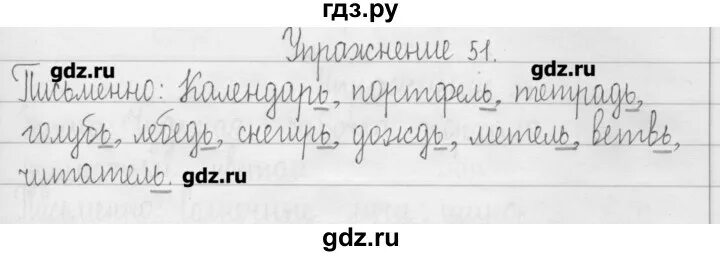 гдз.ру
Упражнение 51.
gdz.ru gdz.ru
Письменно: Календарь, портфель, тетрадь,
голубь, лебедь, снегирь, дождь, метель, ветвь,
читатель. gdz.ru
gdz.ru